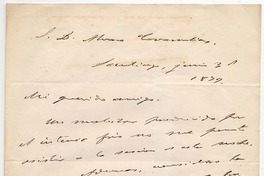 S. D. Alvaro Covarrubias.
Santiago, junio 3
1879.
Mi querido amigo.
Un malestar producido por
el intenso frio no me permite
asistir a la sesion a este
Ademas,